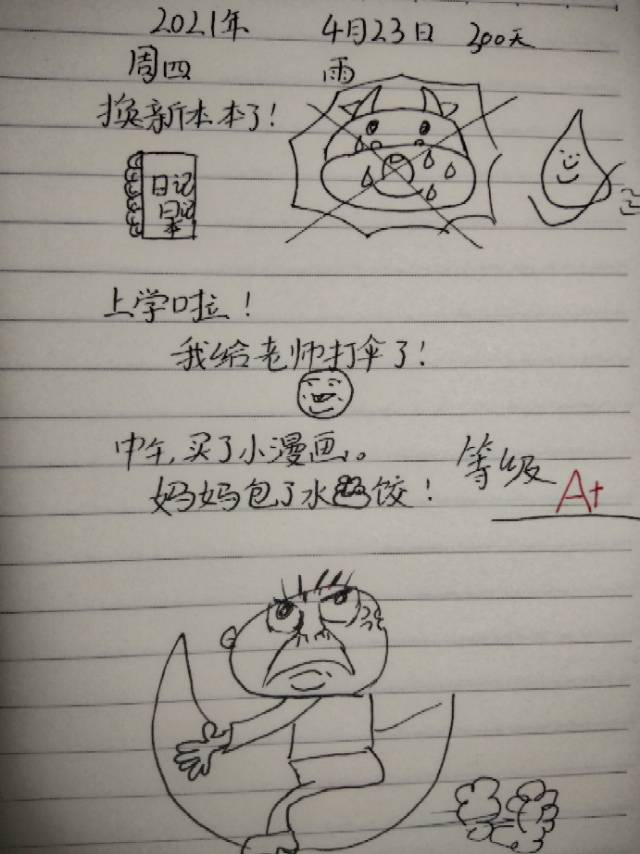 2021年 4月23日 300天
周四 雨
换新本本了！
日记
日记
本
上学啦！
我给老师打伞了！
中午，买了小漫画。
妈妈包了水饺！
等级
A+